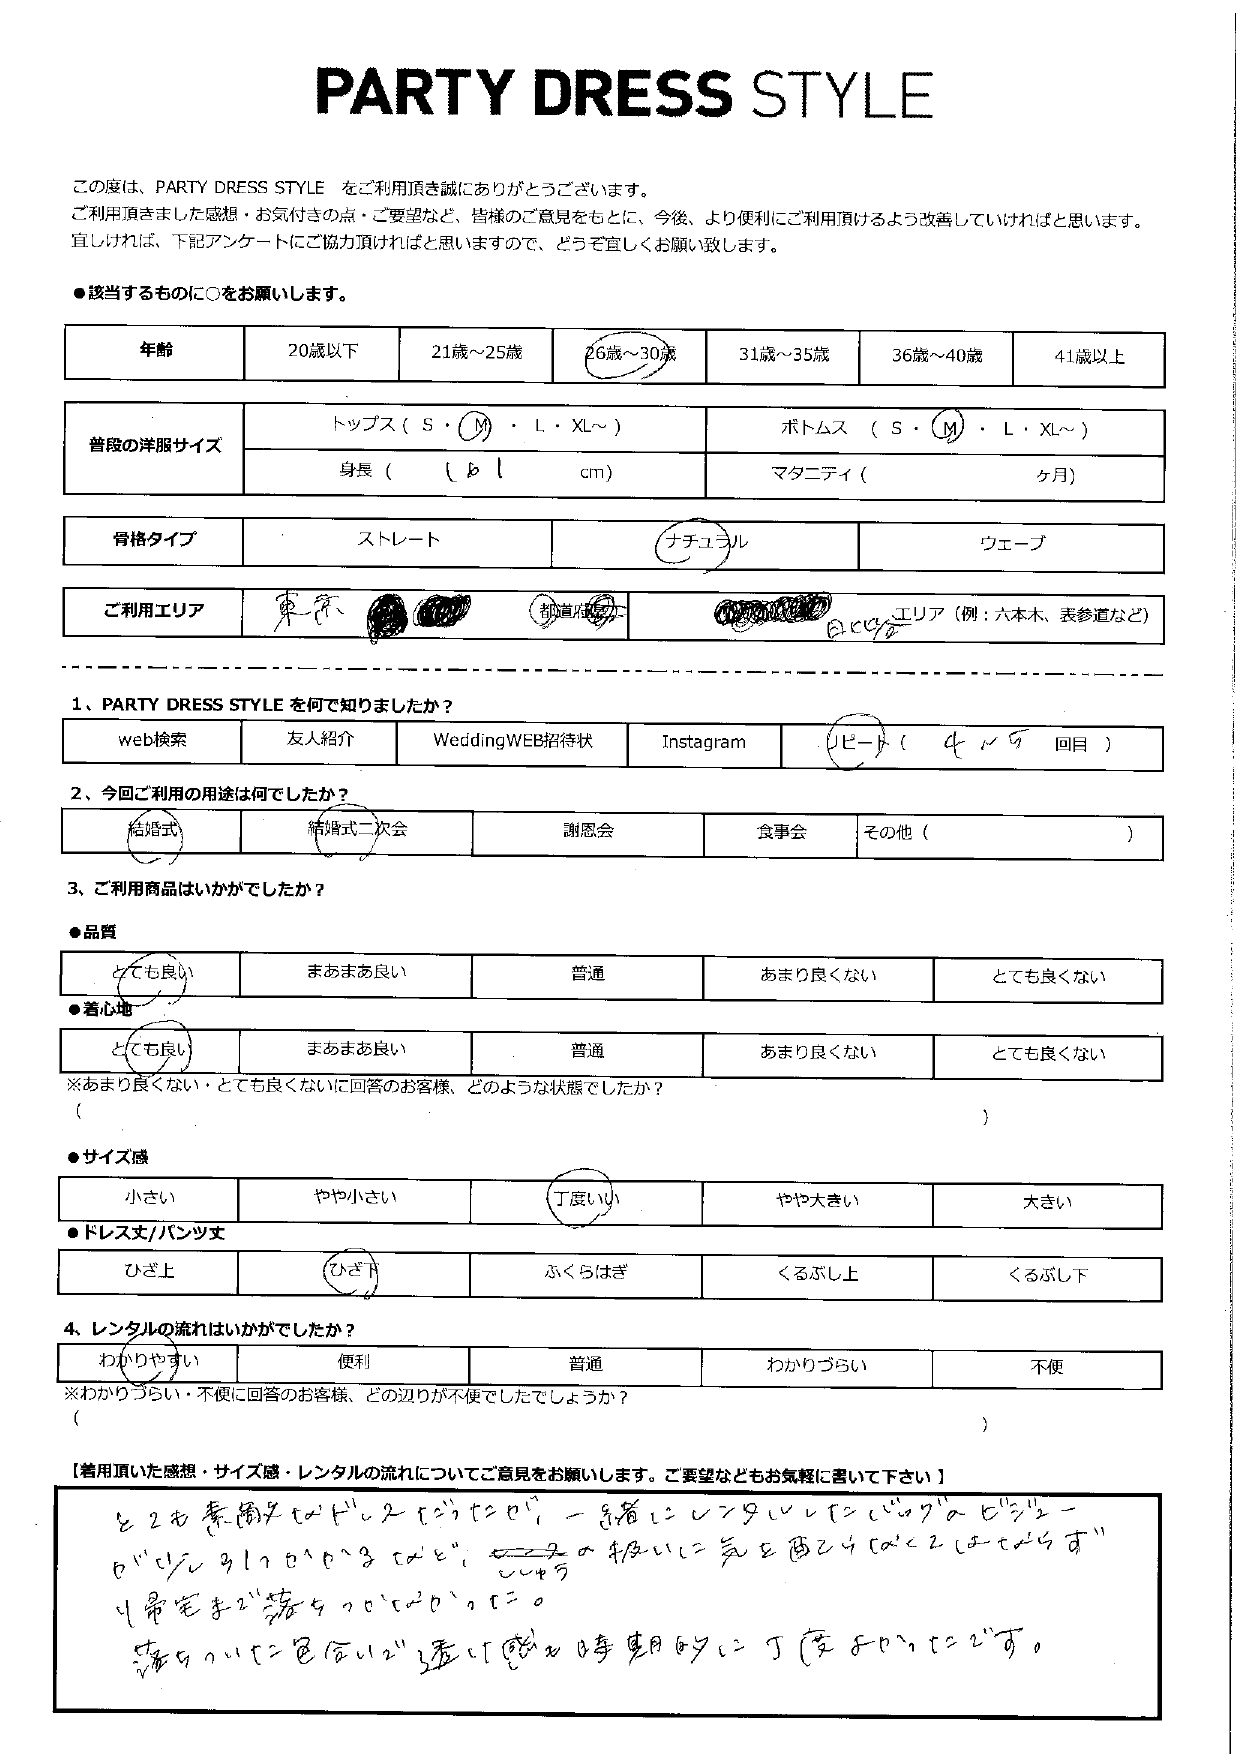 PARTY DRESS STYLE
この度は、PARTY DRESS STYLE をご利用頂き誠にありがとうございます。
ご利用頂きました感想・お気付きの点・ご要望など、皆様のご意見をもとに、今後、より便利にご利用頂けるよう改善していければと思います。
宜しければ、下記アンケートにご協力頂ければと思いますので、どうぞ宜しくお願い致します。
●該当するものに○をお願いします。
年齢 20歳以下 21歳～25歳 26歳～30歳 31歳～35歳 36歳～40歳 41歳以上
普段の洋服サイズ トップス ( S ・ M ・ L ・ XL～ ) ボトムス ( S ・ M ・ L ・ XL～ )
身長 ( 161 cm) マタニティ ( ヶ月)
骨格タイプ ストレート ナチュラル ウェーブ
ご利用エリア 東京 都道府県 エリア（例：六本木、表参道など）
日比谷
1、PARTY DRESS STYLE を何で知りましたか？
web検索 友人紹介 WeddingWEB招待状 Instagram リピート ( 4〜5 回目 )
2、今回ご利用の用途は何でしたか？
結婚式 結婚式二次会 謝恩会 食事会 その他 ( )
3、ご利用商品はいかがでしたか？
●品質
とても良い まあまあ良い 普通 あまり良くない とても良くない
●着心地
とても良い まあまあ良い 普通 あまり良くない とても良くない
※あまり良くない・とても良くないに回答のお客様、どのような状態でしたか？
( )
●サイズ感
小さい やや小さい 丁度いい やや大きい 大きい
●ドレス丈/パンツ丈
ひざ上 ひざ下 ふくらはぎ くるぶし上 くるぶし下
4、レンタルの流れはいかがでしたか？
わかりやすい 便利 普通 わかりづらい 不便
※わかりづらい・不便に回答のお客様、どの辺りが不便でしたでしょうか？
( )
【着用頂いた感想・サイズ感・レンタルの流れについてご意見をお願いします。ご要望などもお気軽に書いて下さい】
とても素敵なドレスだったが、一緒にレンタルしたバッグのビジュー
が少し引っかかるなど、の扱いに気を配らなくてはならず
ししゅう
帰宅まで落ちつかなかった。
落ちついた色合いで透け感も時期的に丁度よかったです。